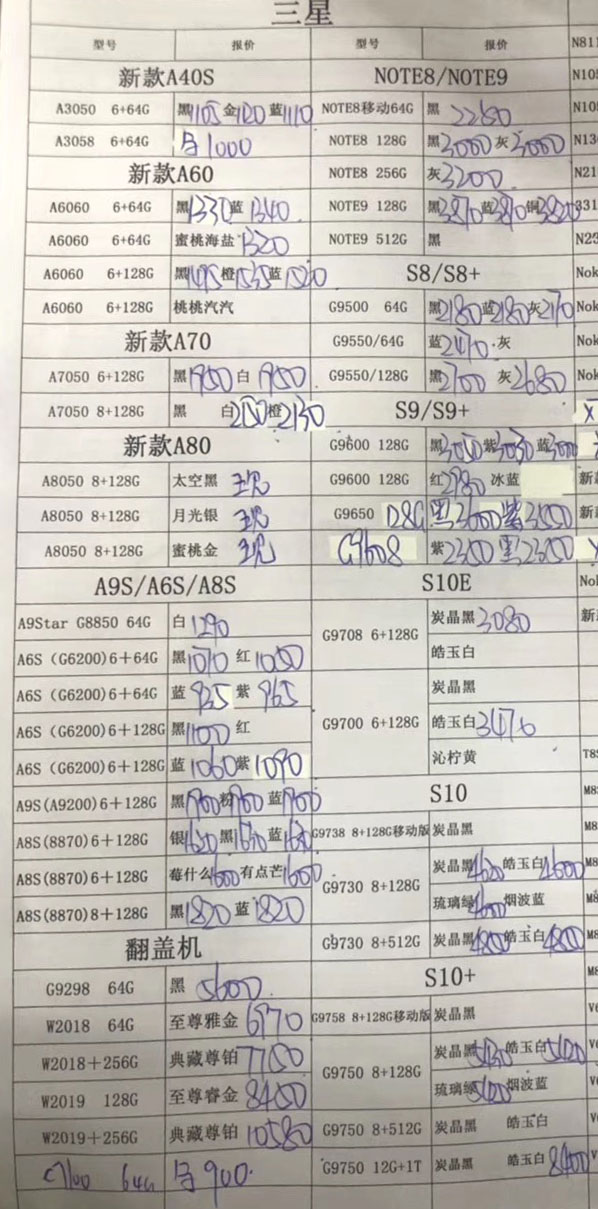 三星
型号 报价 型号 报价 N811
新款A40S NOTE8/NOTE9 N105
A3050 6+64G 黑1105金1120蓝1110 NOTE8移动64G 黑 2280 N105
A3058 6+64G 1000 NOTE8 128G 黑3000灰3000 N13
新款A60 NOTE8 256G 灰3200 N21
A6060 6+64G 黑1330蓝1340 NOTE9 128G 黑3870蓝3810铜3820 331
A6060 6+64G 蜜桃海盐1320 NOTE9 512G 黑 N23
A6060 6+128G 黑1495橙1535蓝1520 S8/S8+ Nok
A6060 6+128G 桃桃汽汽 G9500 64G 黑2180蓝2180灰2170 Nok
新款A70 G9550/64G 蓝2470灰 Nok
A7050 6+128G 黑1950白1950 G9550/128G 黑2700灰2680 Nok
A7050 8+128G 黑 白2150橙2130 S9/S9+
新款A80 G9600 128G 黑3050紫3030蓝3000
A8050 8+128G 太空黑 现 G9600 128G 红2980冰蓝 新款
A8050 8+128G 月光银 现 G9650 128G 黑3600紫3550 新款
A8050 8+128G 蜜桃金 现 G9608 紫2300黑2300
A9S/A6S/A8S S10E Nok
A9Star G8850 64G 白1290 G9708 6+128G 炭晶黑3080 新
A6S（G6200)6+64G 黑1070红1050 皓玉白
A6S（G6200)6+64G 蓝935紫965 G9700 6+128G 炭晶黑
A6S（G6200)6+128G 黑1100红 皓玉白3470
A6S（G6200)6+128G 蓝1060紫1090 沁柠黄 T8S
A9S(A9200)6+128G 黑1900粉1900蓝1900 S10 M8S
A8S(8870)6+128G 银1620黑1630蓝1630 G9738 8+128G移动版 炭晶黑 M8
A8S(8870)6+128G 莓什么1600有点芒1600 G9730 8+128G 炭晶黑4620皓玉白4600 M8
A8S(8870)8+128G 黑1820蓝1820 琉璃绿4600烟波蓝 M8
翻盖机 G9730 8+512G 炭晶黑4800皓玉白4800 M8
G9298 64G 黑 5600 S10+ M8
W2018 64G 至尊雅金6970 G9758 8+128G移动版 炭晶黑 V6
W2018+256G 典藏尊铂7150 G9750 8+128G 炭晶黑5130皓玉白5120 V6
W2019 128G 至尊睿金8450 琉璃绿5100烟波蓝 V6
W2019+256G 典藏尊铂10580 G9750 8+512G 炭晶黑 皓玉白
C7100 64G 900 G9750 12G+1T 炭晶黑 皓玉白8400